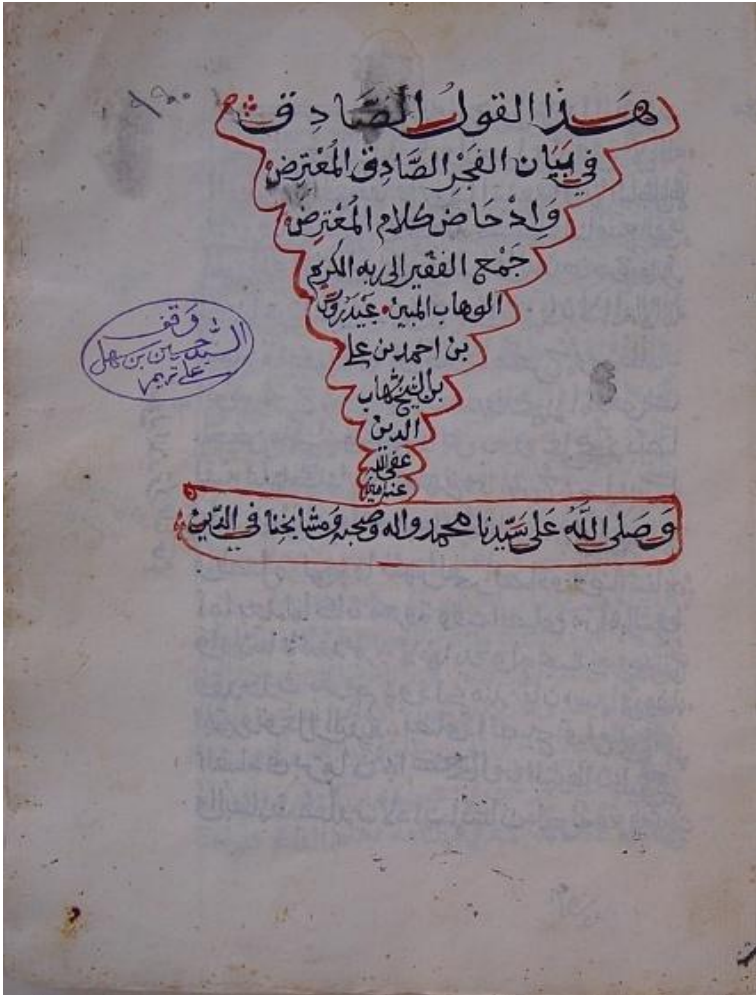 هَذَا القولُ الصَّادِق
في بَيَان الفَجْرِ الصَّادِقِ المُعْتَرِض
وَادْحَاض كلام المُعْتَرِض
جَمْعِ الفقير الى ربه الكريم
الوهاب المبين عَيْدَرُوس
بن احمد بن علي
بن الشيخ شهاب
الدين
عفى الله
عنه
وَصَلى اللَّهُ عَلى سَيِّدنا محمد واله وصحبه ومشايخنا في الدِّين
وقف
السيد حسين بن سهل
على تريم